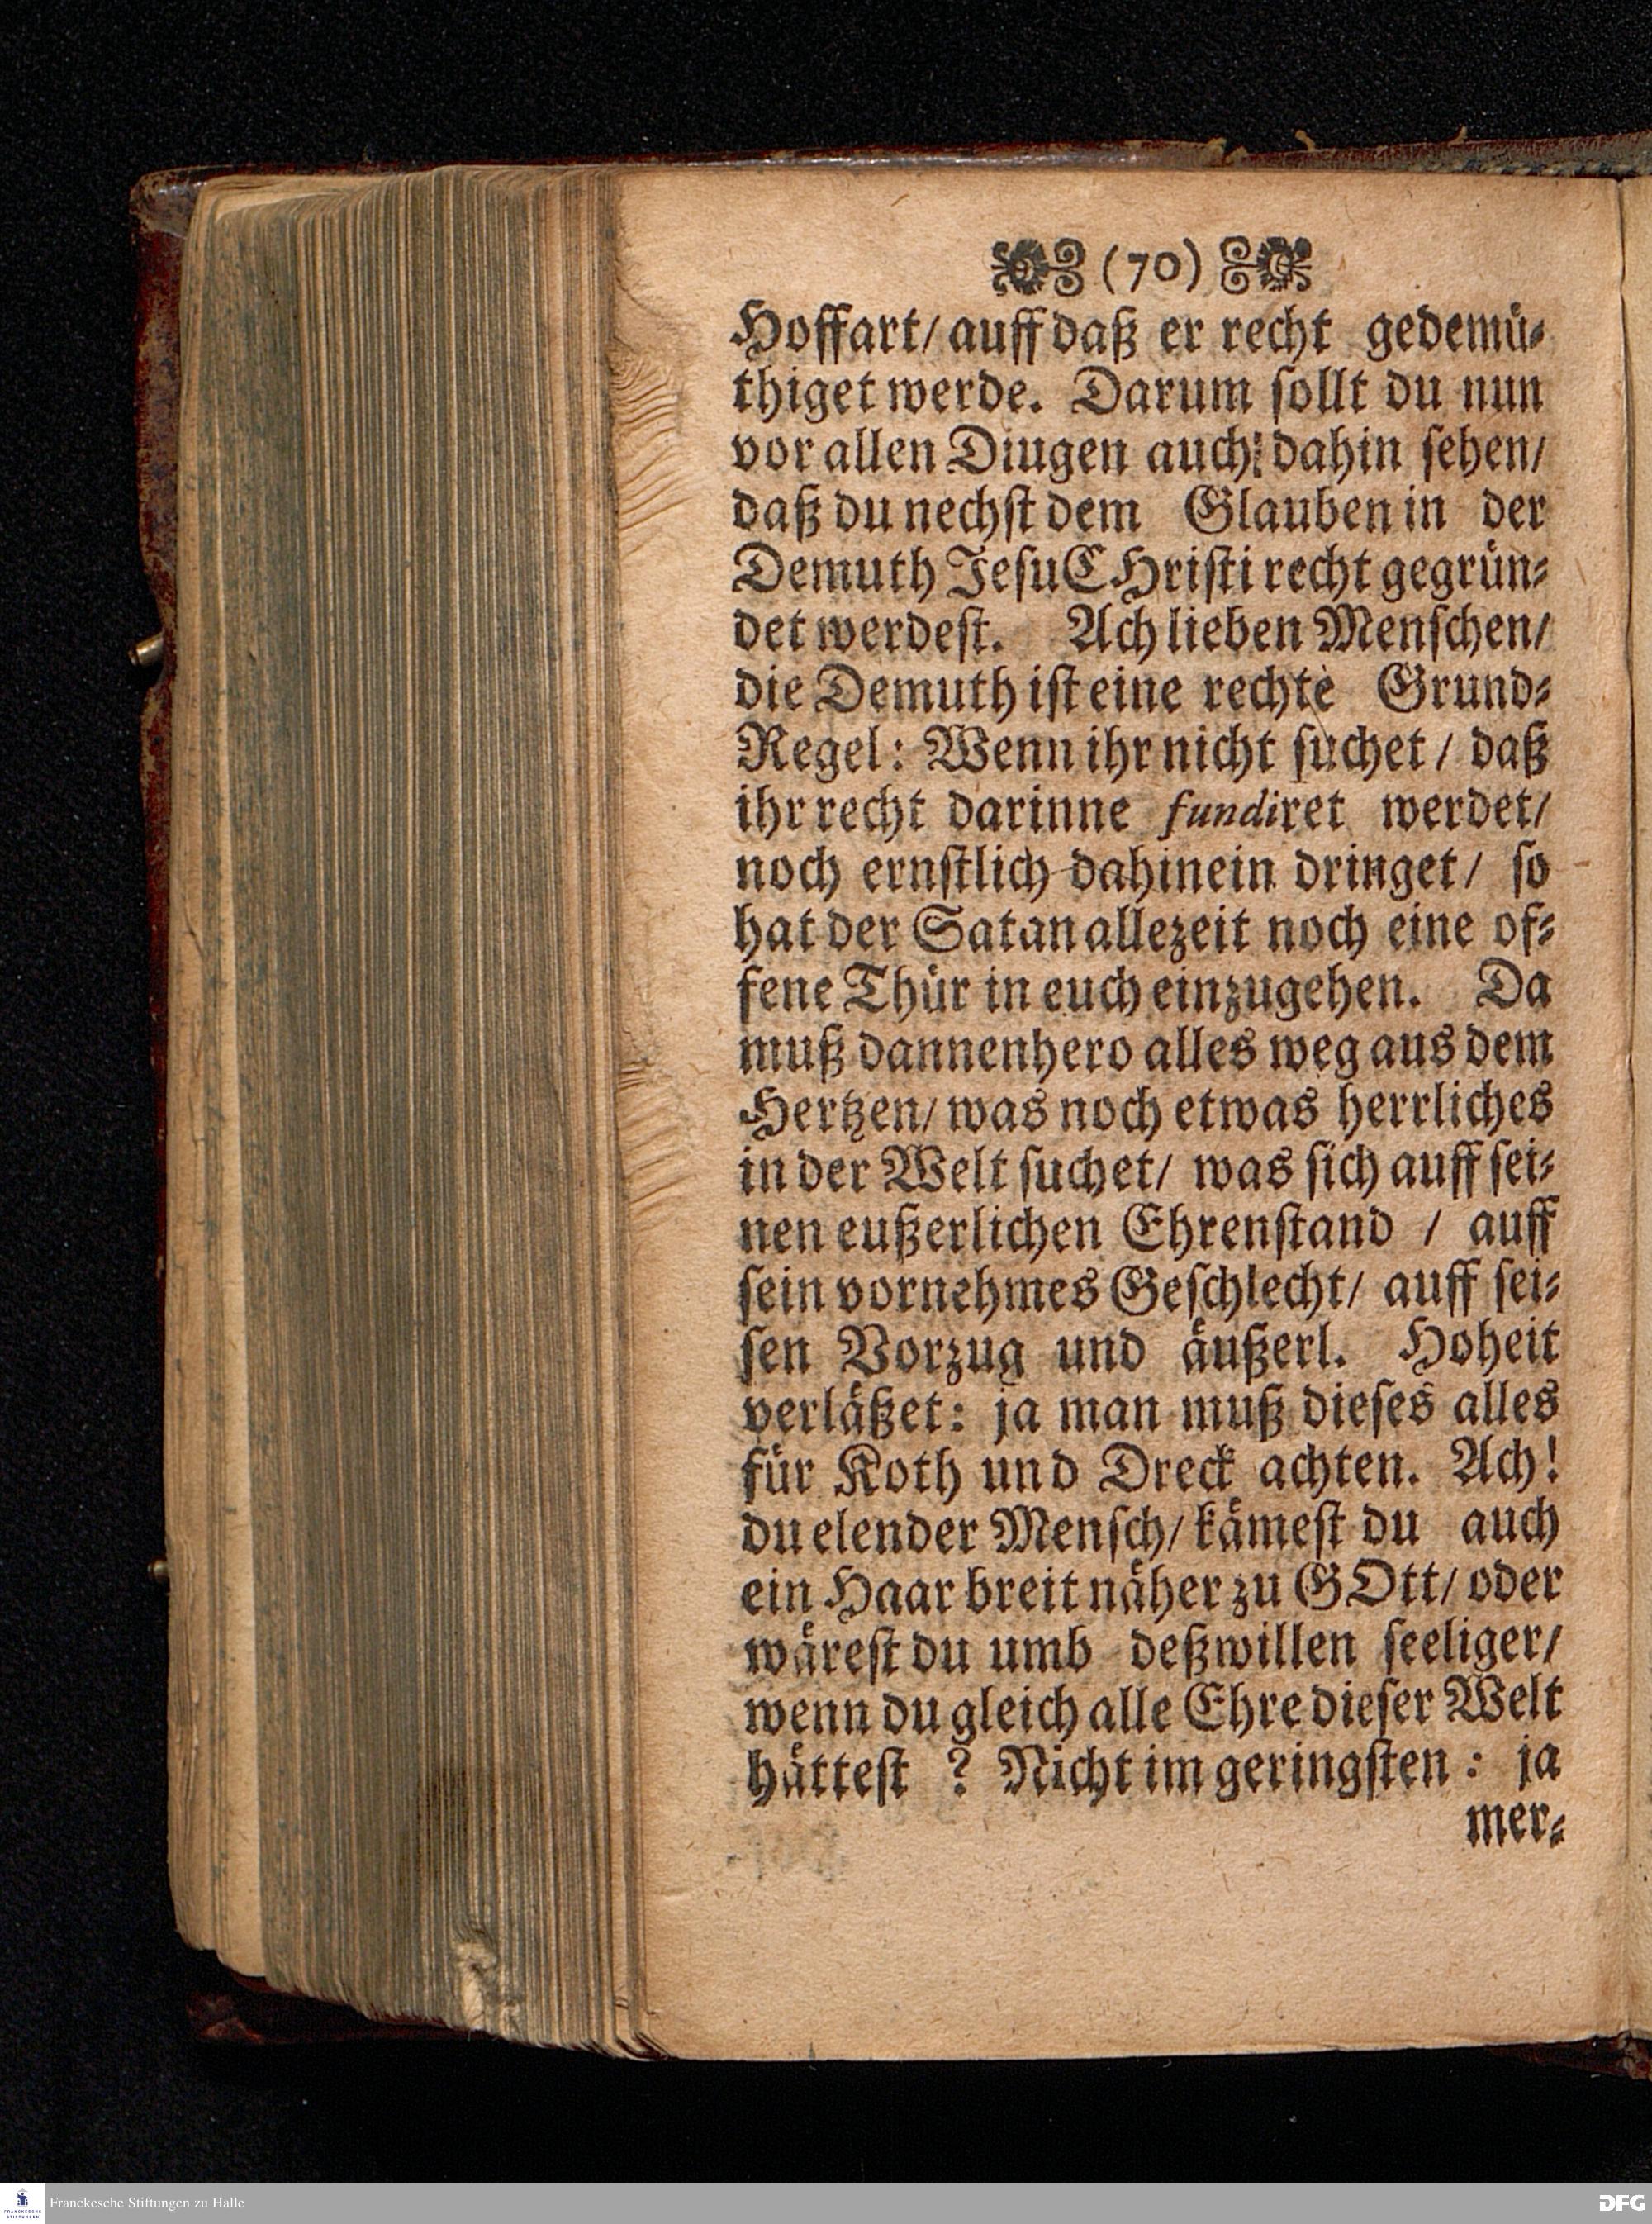 (70)
Hoffart/ auff daß er recht gedemü-
thiget werde. Darum sollt du nun
vor allen Diugen auch dahin sehen/
daß du nechst dem Glauben in der
Demuth Jesu CHristi recht gegrün-
det werdest. Ach lieben Menschen/
die Demuth ist eine rechte Grund-
Regel: Wenn ihr nicht suchet / daß
ihr recht darinne fundiret werdet/
noch ernstlich dahinein dringet/ so
hat der Satan allezeit noch eine of-
fene Thür in euch einzugehen. Da
muß dannenhero alles weg aus dem
Hertzen/ was noch etwas herrliches
in der Welt suchet/ was sich auff sei-
nen eußerlichen Ehrenstand / auff
sein vornehmes Geschlecht/ auff sei-
sen Vorzug und äußerl. Hoheit
verläßet: ja man muß dieses alles
für Koth und Dreck achten. Ach!
du elender Mensch/ kämest du auch
ein Haar breit näher zu GOtt/ oder
wärest du umb deßwillen seeliger/
wenn du gleich alle Ehre dieser Welt
hättest ? Nicht im geringsten : ja
mer-
FRANCKESCHE STIFTUNGEN
Franckesche Stiftungen zu Halle
DFG